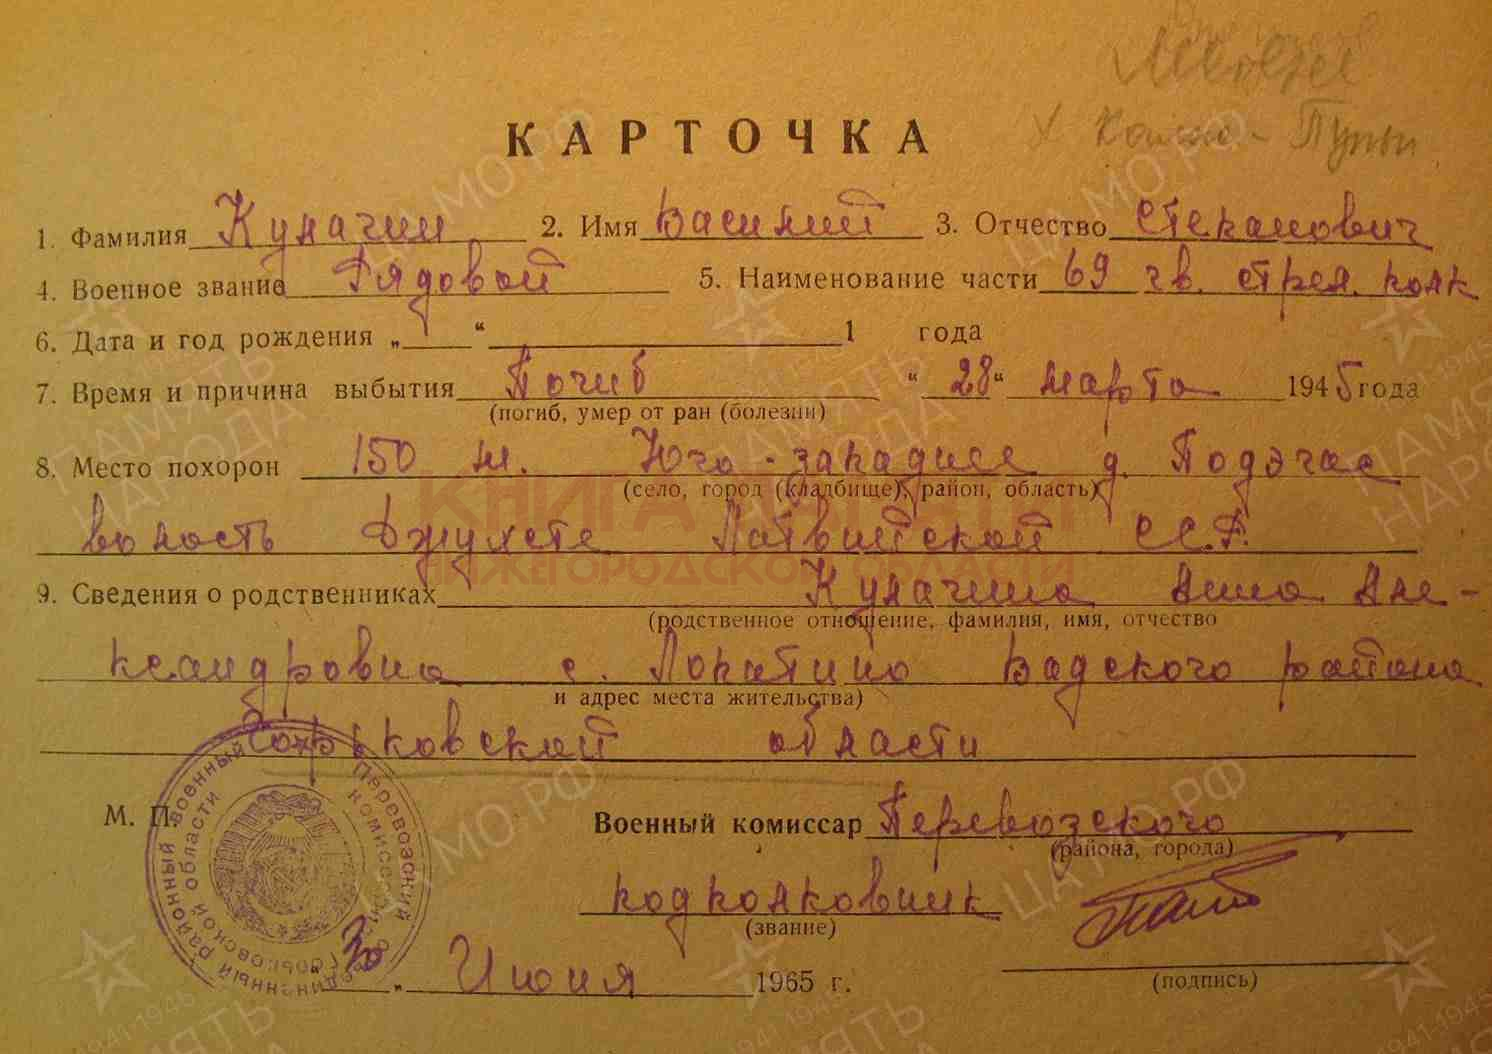 Калне - Пупы
КАРТОЧКА
1. Фамилия Кулагин 2. Имя Василий 3. Отчество Степанович
4. Военное звание Рядовой 5. Наименование части 69 гв. стрел. полк
6. Дата и год рождения „ “ 1 года
7. Время и причина выбытия Погиб “ 28 “ марта 1945 года
(погиб, умер от ран (болезни)
8. Место похорон 150 м. Юго-западнее д. Подэгас
(село, город (кладбище), район, область)
волость Джухсте Латвийской ССР.
КНИГА ПАМЯТИ
НИЖЕГОРОДСКОЙ ОБЛАСТИ
9. Сведения о родственниках Кулагина Анна Але-
(родственное отношение, фамилия, имя, отчество
ксандровна с. Лопатино Вадского района
и адрес места жительства)
Горьковской области
М. П. Военный комиссар Перевозского
(района, города)
подполковник
(звание)
„ 30 „ Июня 1965 г.
(подпись)
Перевозский объединенный районный военный комиссариат Горьковской области
ЦАМО.РФ
ПАМЯТЬ НАРОДА
1941-1945